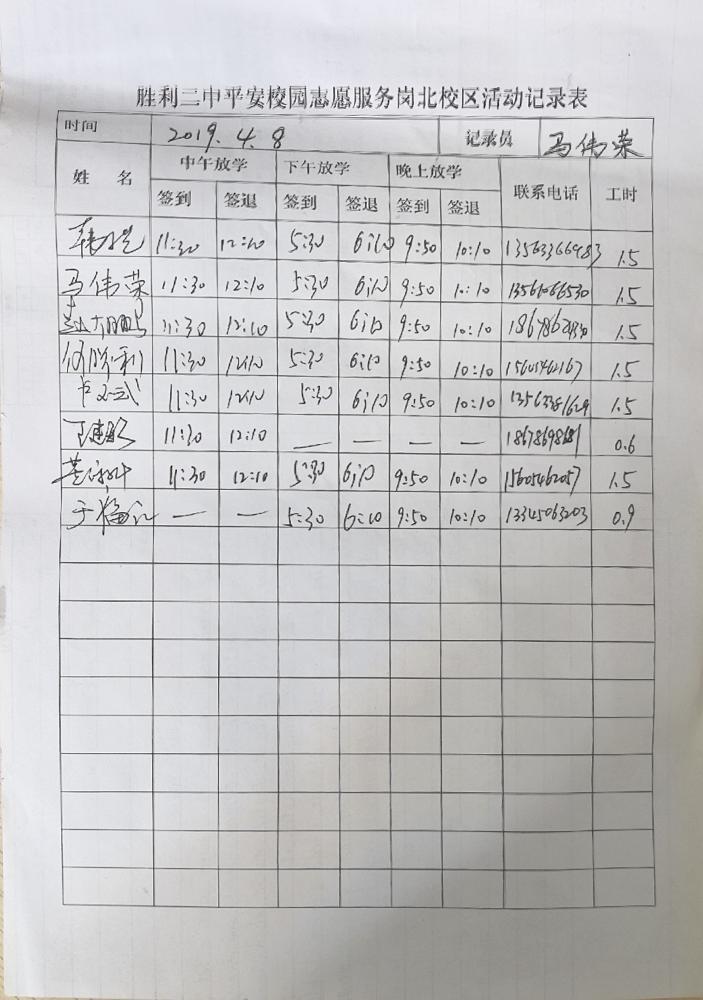 胜利二中平安校园志愿服务岗北校区活动记录表
时间 2019.4.8 记录员 马伟荣
姓 名 中午放学 下午放学 晚上放学 联系电话 工时
签到 签退 签到 签退 签到 签退
11:30 12:10 5:30 6:10 9:50 10:10 13563366983 1.5
马伟荣 11:30 12:10 5:30 6:10 9:50 10:10 13561066530 1.5
11:30 12:10 5:30 6:10 9:50 10:10 1.5
何胜利 11:30 12:10 5:30 6:10 9:50 10:10 15605462167 1.5
11:30 12:10 5:30 6:10 9:50 10:10 1.5
11:30 12:10 — — — — 0.6
11:30 12:10 5:30 6:10 9:50 10:10 15605462057 1.5
于福江 — — 5:30 6:10 9:50 10:10 13345063203 0.9